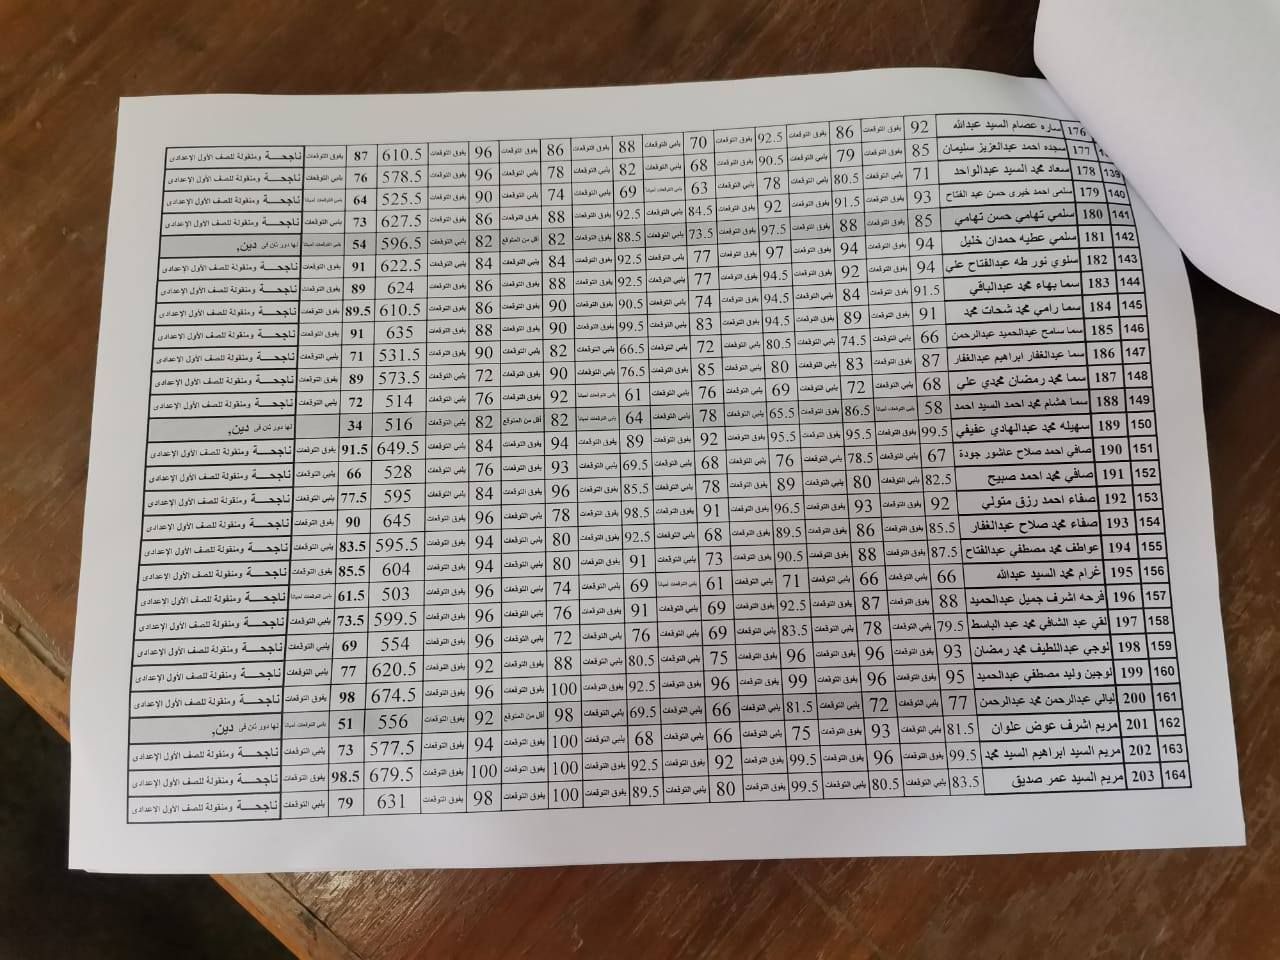 176 ساره عصام السيد عبدالله 92 يفوق التوقعات 86 يفوق التوقعات 92.5 يفوق التوقعات 70 يلبي التوقعات 88 يفوق التوقعات 86 يفوق التوقعات 96 يفوق التوقعات 610.5 87 يفوق التوقعات ناجحـــة ومنقولة للصف الأول الإعدادى
177 سجده احمد عبدالعزيز سليمان 85 يفوق التوقعات 79 يلبي التوقعات 90.5 يفوق التوقعات 68 يلبي التوقعات 82 يلبي التوقعات 78 يلبي التوقعات 96 يفوق التوقعات 578.5 76 يلبي التوقعات ناجحـــة ومنقولة للصف الأول الإعدادى
139 178 سعاد محمد السيد عبدالواحد 71 يلبي التوقعات 80.5 يلبي التوقعات 78 يلبي التوقعات 63 يلبي التوقعات أحيانا 69 يلبي التوقعات 74 يلبي التوقعات 90 يفوق التوقعات 525.5 64 يلبي التوقعات أحيانا ناجحـــة ومنقولة للصف الأول الإعدادى
140 179 سلمى احمد خيرى حسن عبد الفتاح 93 يفوق التوقعات 91.5 يفوق التوقعات 92 يفوق التوقعات 84.5 يلبي التوقعات 92.5 يفوق التوقعات 88 يفوق التوقعات 86 يفوق التوقعات 627.5 73 يلبي التوقعات ناجحـــة ومنقولة للصف الأول الإعدادى
141 180 سلمي تهامي حسن تهامي 85 يفوق التوقعات 88 يفوق التوقعات 97.5 يفوق التوقعات 73.5 يلبي التوقعات 88.5 يفوق التوقعات 82 أقل من المتوقع 82 يلبي التوقعات 596.5 54 يلبي التوقعات أحيانا لها دور ثان فى دين,
142 181 سلمي عطيه حمدان خليل 94 يفوق التوقعات 94 يفوق التوقعات 97 يفوق التوقعات 77 يلبي التوقعات 92.5 يفوق التوقعات 84 يلبي التوقعات 84 يلبي التوقعات 622.5 91 يفوق التوقعات ناجحـــة ومنقولة للصف الأول الإعدادى
143 182 سلوي نور طه عبدالفتاح علي 94 يفوق التوقعات 92 يفوق التوقعات 94.5 يفوق التوقعات 77 يلبي التوقعات 92.5 يفوق التوقعات 88 يفوق التوقعات 86 يفوق التوقعات 624 89 يفوق التوقعات ناجحـــة ومنقولة للصف الأول الإعدادى
144 183 سما بهاء محمد عبدالباقي 91.5 يفوق التوقعات 84 يلبي التوقعات 94.5 يفوق التوقعات 74 يلبي التوقعات 90.5 يفوق التوقعات 90 يفوق التوقعات 86 يفوق التوقعات 610.5 89.5 يفوق التوقعات ناجحـــة ومنقولة للصف الأول الإعدادى
145 184 سما رامي محمد شحات محمد 91 يفوق التوقعات 89 يفوق التوقعات 94.5 يفوق التوقعات 83 يلبي التوقعات 99.5 يفوق التوقعات 90 يفوق التوقعات 88 يفوق التوقعات 635 91 يفوق التوقعات ناجحـــة ومنقولة للصف الأول الإعدادى
146 185 سما سامح عبدالحميد عبدالرحمن 66 يلبي التوقعات 74.5 يلبي التوقعات 80.5 يلبي التوقعات 72 يلبي التوقعات 66.5 يلبي التوقعات 82 يلبي التوقعات 90 يفوق التوقعات 531.5 71 يلبي التوقعات ناجحـــة ومنقولة للصف الأول الإعدادى
147 186 سما عبدالغفار ابراهيم عبدالغفار 87 يفوق التوقعات 83 يلبي التوقعات 80 يلبي التوقعات 85 يفوق التوقعات 76.5 يلبي التوقعات 90 يفوق التوقعات 72 يلبي التوقعات 573.5 89 يفوق التوقعات ناجحـــة ومنقولة للصف الأول الإعدادى
148 187 سما محمد رمضان محمدي علي 68 يلبي التوقعات 72 يلبي التوقعات 69 يلبي التوقعات 76 يلبي التوقعات 61 يلبي التوقعات أحيانا 92 يفوق التوقعات 76 يلبي التوقعات 514 72 يلبي التوقعات ناجحـــة ومنقولة للصف الأول الإعدادى
149 188 سما هشام محمد احمد السيد احمد 58 يلبي التوقعات أحيانا 86.5 يفوق التوقعات 65.5 يلبي التوقعات 78 يلبي التوقعات 64 يلبي التوقعات أحيانا 82 أقل من المتوقع 82 يلبي التوقعات 516 34 لها دور ثان فى دين,
150 189 سهيله محمد عبدالهادي عفيفي 99.5 يفوق التوقعات 95.5 يفوق التوقعات 95.5 يفوق التوقعات 92 يفوق التوقعات 89 يفوق التوقعات 94 يفوق التوقعات 84 يلبي التوقعات 649.5 91.5 يفوق التوقعات ناجحـــة ومنقولة للصف الأول الإعدادى
151 190 صافي احمد صلاح عاشور جودة 67 يلبي التوقعات 78.5 يلبي التوقعات 76 يلبي التوقعات 68 يلبي التوقعات 69.5 يلبي التوقعات 93 يفوق التوقعات 76 يلبي التوقعات 528 66 يلبي التوقعات ناجحـــة ومنقولة للصف الأول الإعدادى
152 191 صافي محمد احمد صبيح 82.5 يلبي التوقعات 80 يلبي التوقعات 89 يفوق التوقعات 78 يلبي التوقعات 85.5 يفوق التوقعات 96 يفوق التوقعات 84 يلبي التوقعات 595 77.5 يلبي التوقعات ناجحـــة ومنقولة للصف الأول الإعدادى
153 192 صفاء احمد رزق متولي 92 يفوق التوقعات 93 يفوق التوقعات 96.5 يفوق التوقعات 91 يفوق التوقعات 98.5 يفوق التوقعات 78 يلبي التوقعات 96 يفوق التوقعات 645 90 يفوق التوقعات ناجحـــة ومنقولة للصف الأول الإعدادى
154 193 صفاء محمد صلاح عبدالغفار 85.5 يفوق التوقعات 86 يفوق التوقعات 89.5 يفوق التوقعات 68 يلبي التوقعات 92.5 يفوق التوقعات 80 يلبي التوقعات 94 يفوق التوقعات 595.5 83.5 يلبي التوقعات ناجحـــة ومنقولة للصف الأول الإعدادى
155 194 عواطف محمد مصطفي عبدالفتاح 87.5 يفوق التوقعات 88 يفوق التوقعات 90.5 يفوق التوقعات 73 يلبي التوقعات 91 يفوق التوقعات 80 يلبي التوقعات 94 يفوق التوقعات 604 85.5 يفوق التوقعات ناجحـــة ومنقولة للصف الأول الإعدادى
156 195 غرام محمد السيد عبدالله 66 يلبي التوقعات 66 يلبي التوقعات 71 يلبي التوقعات 61 يلبي التوقعات أحيانا 69 يلبي التوقعات 74 يلبي التوقعات 96 يفوق التوقعات 503 61.5 يلبي التوقعات أحيانا ناجحـــة ومنقولة للصف الأول الإعدادى
157 196 فرحه اشرف جميل عبدالحميد 88 يفوق التوقعات 87 يفوق التوقعات 92.5 يفوق التوقعات 69 يلبي التوقعات 91 يفوق التوقعات 76 يلبي التوقعات 96 يفوق التوقعات 599.5 73.5 يلبي التوقعات ناجحـــة ومنقولة للصف الأول الإعدادى
158 197 لقي عبد الشافي محمد عبد الباسط 79.5 يلبي التوقعات 78 يلبي التوقعات 83.5 يلبي التوقعات 69 يلبي التوقعات 76 يلبي التوقعات 72 يلبي التوقعات 96 يفوق التوقعات 554 69 يلبي التوقعات ناجحـــة ومنقولة للصف الأول الإعدادى
159 198 لوجي عبداللطيف محمد رمضان 93 يفوق التوقعات 96 يفوق التوقعات 96 يفوق التوقعات 75 يلبي التوقعات 80.5 يلبي التوقعات 88 يفوق التوقعات 92 يفوق التوقعات 620.5 77 يلبي التوقعات ناجحـــة ومنقولة للصف الأول الإعدادى
160 199 لوجين وليد مصطفي عبدالحميد 95 يفوق التوقعات 96 يفوق التوقعات 99 يفوق التوقعات 96 يفوق التوقعات 92.5 يفوق التوقعات 100 يفوق التوقعات 96 يفوق التوقعات 674.5 98 يفوق التوقعات ناجحـــة ومنقولة للصف الأول الإعدادى
161 200 ليالي عبدالرحمن محمد عبدالرحمن 77 يلبي التوقعات 72 يلبي التوقعات 81.5 يلبي التوقعات 66 يلبي التوقعات 69.5 يلبي التوقعات 98 أقل من المتوقع 92 يفوق التوقعات 556 51 يلبي التوقعات أحيانا لها دور ثان فى دين,
162 201 مريم اشرف عوض علوان 81.5 يلبي التوقعات 93 يفوق التوقعات 75 يلبي التوقعات 66 يلبي التوقعات 68 يلبي التوقعات 100 يفوق التوقعات 94 يفوق التوقعات 577.5 73 يلبي التوقعات ناجحـــة ومنقولة للصف الأول الإعدادى
163 202 مريم السيد ابراهيم السيد محمد 99.5 يفوق التوقعات 96 يفوق التوقعات 99.5 يفوق التوقعات 92 يفوق التوقعات 92.5 يفوق التوقعات 100 يفوق التوقعات 100 يفوق التوقعات 679.5 98.5 يفوق التوقعات ناجحـــة ومنقولة للصف الأول الإعدادى
164 203 مريم السيد عمر صديق 83.5 يلبي التوقعات 80.5 يلبي التوقعات 99.5 يفوق التوقعات 80 يلبي التوقعات 89.5 يفوق التوقعات 100 يفوق التوقعات 98 يفوق التوقعات 631 79 يلبي التوقعات ناجحـــة ومنقولة للصف الأول الإعدادى